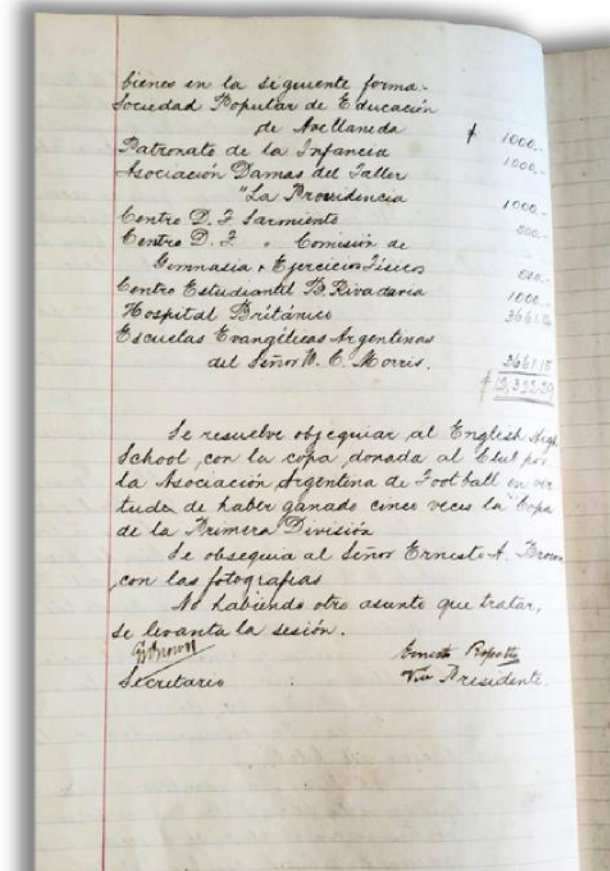 bienes en la siguiente forma.-
Sociedad Popular de Educación
de Avellaneda $ 1000.-
Patronato de la Infancia 1000.-
Asociación Damas del Taller
"La Providencia 1000.-
Centro D. F. Sarmiento 500.-
Centro D. F. " Comisión de
Gimnasia y Ejercicios Físicos 500.-
Centro Estudiantil B. Rivadavia 1000.-
Hospital Británico 3661.14
Escuelas Evangélicas Argentinas
del Señor W. C. Morris. 3661.15
$ 12,322.29
Se resuelve objequiar al English High
School, con la copa donada al Club por
la Asociación Argentina de Football en vir
tude de haber ganado cinco veces la "Copa
de la Primera División
Se obsequia al Señor Ernesto A. Brown
con las fotografias
No habiendo otro asunto que tratar,
se levanta la sesión.
Brown Ernesto
Secretario Vice Presidente.